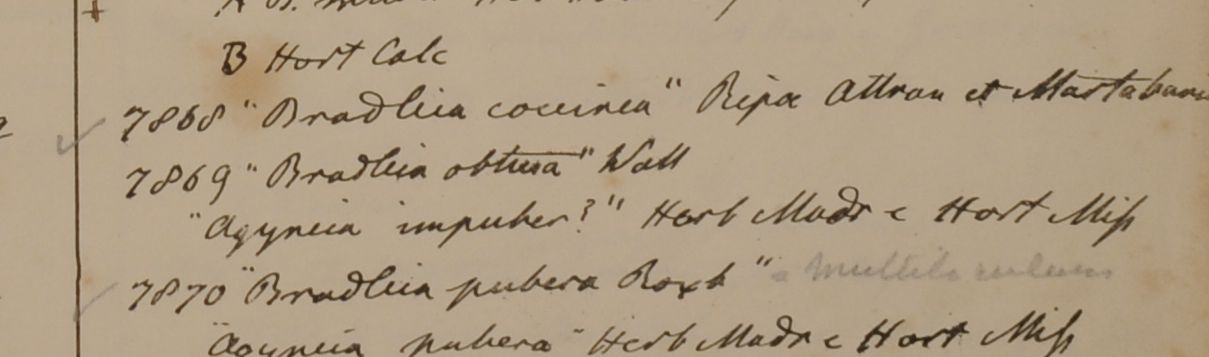 B Hort Calc
7868 "Bradleia coccinea" Ripa Attran et Martabani
7869 "Bradleia obtusa" Wall
"Agyneia impuber?" Herb Madr e Hort Miss
7870 "Bradleia pubera Roxb" = multilocularis
"Agyneia pubera" Herb Madr e Hort Miss